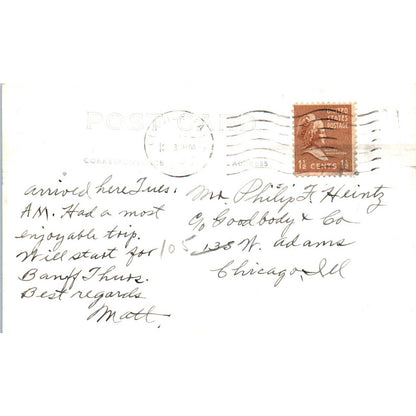 POST CARD
UNITED
STATES
POSTAGE
1½ CENTS 1½
arrived here Tues.
AM. Had a most
enjoyable trip.
Will start for
Banff Thurs.
Best regards
Matt.
Mr. Philip F. Heintz
c/o Goodbody & Co
105 135 W. adams
Chicago, Ill